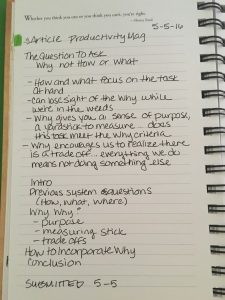 Whether you think you can or you think you can't, you're right.
- Henry Ford
5-5-16
Article Productivity Mag
The Question To Ask
Why not How or What
- How and what focus on the task
at hand
- can lose sight of the why while
we're in the weeds
- Why gives you a sense of purpose,
a yardstick to measure... does
this task meet the why criteria
- Why encourages us to realize there
is a trade off... everything we do
means not doing something else
Intro
Previous system questions
(How, what, where)
Why Why?
- purpose
- measuring stick
- trade offs
How to Incorporate Why
Conclusion
SUBMITTED 5-5